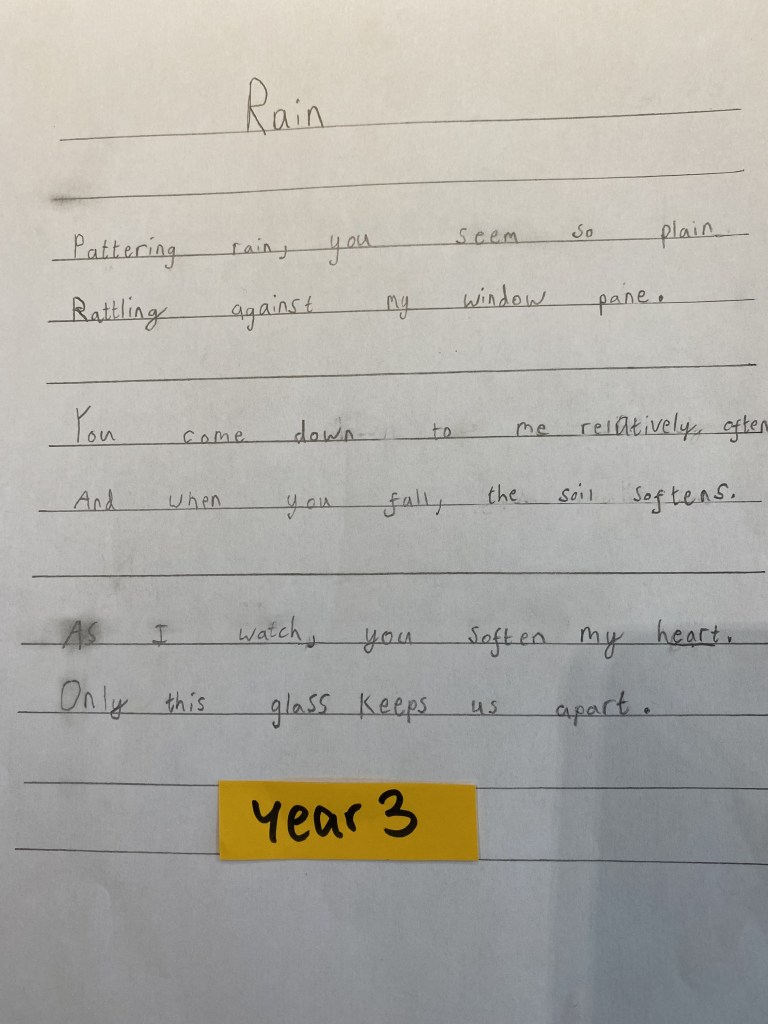 Rain
Pattering rain, you seem so plain
Rattling against my window pane.
You come down to me relatively often
And when you fall, the soil softens.
As I watch, you soften my heart.
Only this glass keeps us apart.
year 3